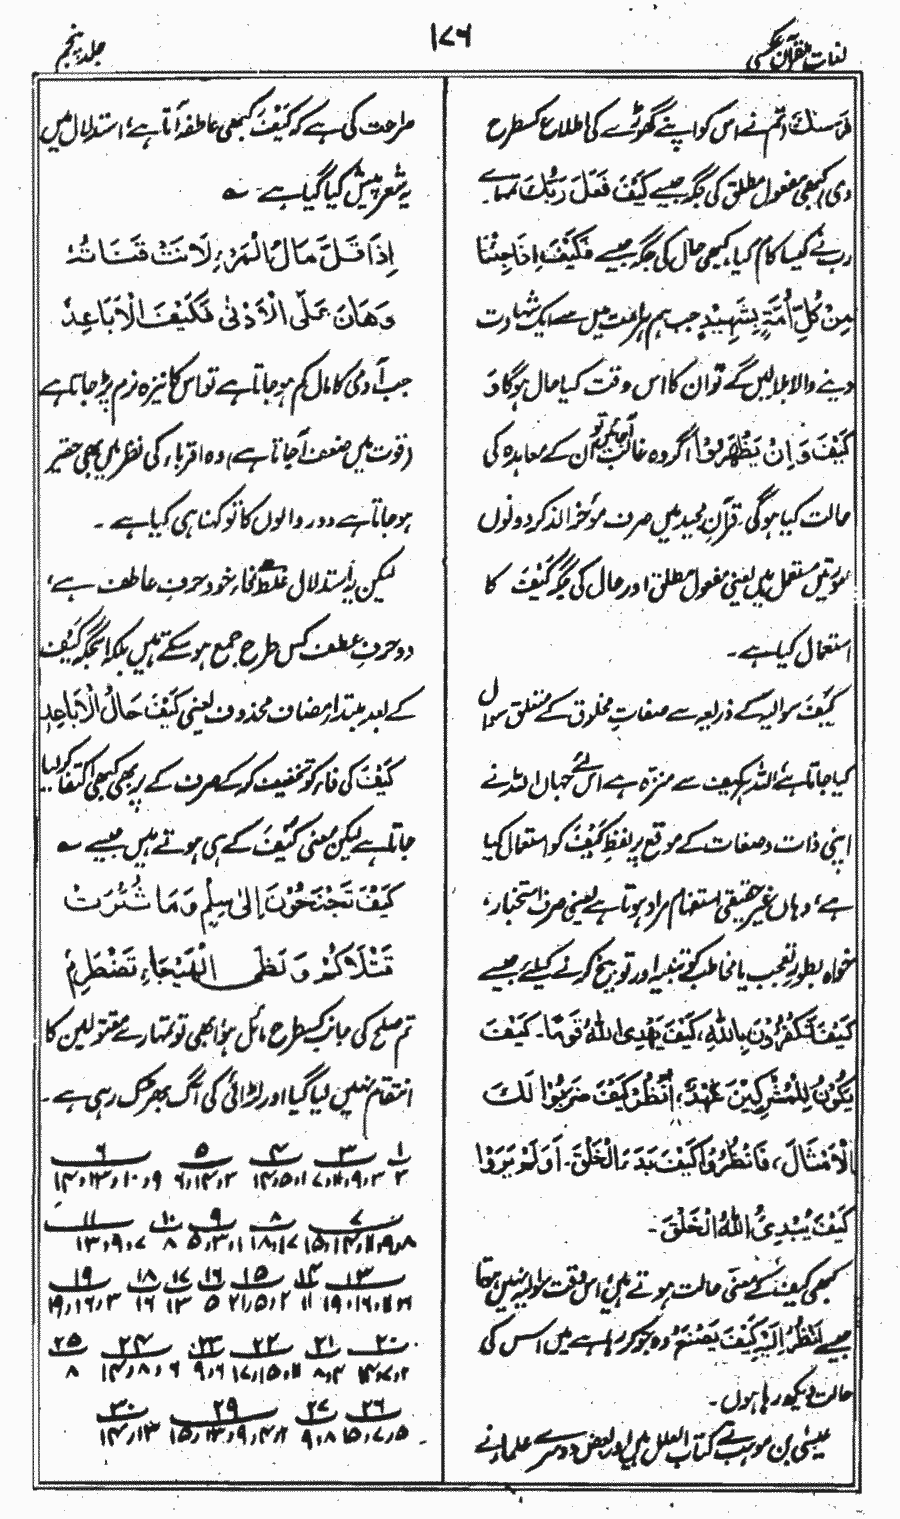 لغات القرآن عکسی
۱۷۶
جلد پنجم
فَسنَكَ تم نے اس کو اپنے گھوڑے کی اطلاع کس طرح
دی، کبھی مفعول مطلق کی جگہ جیسے كَيْفَ فَعَلَ رَبُّكَ تمہارے
رب نے کیسا کام کیا، کبھی حال کی جگہ جیسے فَكَيْفَ اِذَا جِئْنَا
مِنْ كُلِّ اُمَّةٍ بِشَهِيْدٍ جب ہم ہر امت میں سے ایک شہادت
دینے والا بلالیں گے تو ان کا اس وقت کیا حال ہوگا وَ
كَيْفَ وَ اِنْ يَظْهَرُوْا اگر وہ غالب آجائیں تو ان کے معاہدہ کی
حالت کیا ہوگی۔ قرآن مجید میں صرف مؤخر الذکر دونوں
صورتیں مستعمل ہیں یعنی مفعول مطلق اور حال کی جگہ كَيْفَ کا
استعمال کیا ہے۔
كَيْفَ سوالیہ کے ذریعہ سے صفاتِ مخلوق کے متعلق سوال
کیا جاتا ہے اللہ کیف سے منزہ ہے اس لئے جہاں اللہ نے
اپنی ذات و صفات کے موقع پر لفظ كَيْفَ کو استعمال کیا
ہے، وہاں غیر حقیقی استفہام مراد ہوتا ہے یعنی صرف استخبار،
خواہ بطور تعجب یا مخاطب کو تنبیہ اور توبیخ کرنے کیلئے، جیسے
كَيْفَ تَكْفُرُوْنَ بِاللّٰهِ، كَيْفَ يَهْدِي اللّٰهُ قَوْمًا۔ كَيْفَ
يَكُوْنُ لِلْمُشْرِكِيْنَ عَهْدٌ، اُنْظُرْ كَيْفَ ضَرَبُوْا لَكَ
الْاَمْثَالَ، فَانْظُرُوْا كَيْفَ بَدَءَ الْخَلْقَ۔ اَوَلَمْ يَرَوْا
كَيْفَ يُبْدِئُ اللّٰهُ الْخَلْقَ۔
کبھی کیف کے معنی حالت ہوتے ہیں اس وقت سوالیہ نہیں ہوتا
جیسے اُنْظُرْ اِلَيْهِ كَيْفَ يَصْنَعُ وہ جو کر رہا ہے میں اس کی
حالت دیکھ رہا ہوں۔
عیسیٰ بن موہب نے کتاب العلل میں اور بعض دوسرے علماء نے
صراحت کی ہے کہ كَيْفَ کبھی عاطفہ آتا ہے، استدلال میں
یہ شعر پیش کیا گیا ہے ؎
اِذَا قَلَّ مَالُ الْمَرْءِ لَانَتْ قَنَاتُهٗ
وَهَانَ عَلَى الْاَدْنٰى فَكَيْفَ الْاَبَاعِدُ
جب آدمی کا مال کم ہو جاتا ہے تو اس کا نیزہ نرم پڑ جاتا ہے
(قوت میں ضعف آجاتا ہے) وہ اقرباء کی نظر میں بھی حقیر
ہو جاتا ہے دور والوں کا تو کہنا ہی کیا ہے۔
لیکن یہ استدلال غلط ہے فاء خود حرف عاطف ہے،
دو حرف عطف کس طرح جمع ہو سکتے ہیں بلکہ اسجگہ كَيْفَ
کے بعد مبتدا مضاف محذوف یعنی كَيْفَ حَالُ الْاَبَاعِدِ
كَيْفَ کی فاء کو تخفیف کر کے صرف کے پر بھی کبھی اکتفا کر لیا
جاتا ہے لیکن معنی كَيْفَ کے ہی ہوتے ہیں جیسے ؎
كَيْفَ تَجْنَحُوْنَ اِلٰى سِلْمٍ وَمَا ثُئِرَتْ
قَتْلَاكُمْ وَ لَظَى الْهَيْجَاءِ تَضْطَرِمُ
تم صلح کی جانب کس طرح مائل ہو، ابھی تو تمہارے مقتولین کا
انتقام نہیں لیا گیا اور لڑائی کی آگ بھڑک رہی ہے۔
۱ ۳ ۴ ۵ ۶
۲ ۳، ۹، ۱۱، ۷ ۱، ۵، ۱۴ ۳، ۱۴، ۶ ۹، ۱۰، ۱۳، ۱۴
۷ ۸ ۹ ۱۰ ۱۱
۸، ۹، ۱۱، ۱۴، ۱۵ ۱۷، ۱۸ ۱، ۳، ۵ ۸ ۷، ۹، ۱۳
۱۳ ۱۴ ۱۵ ۱۶ ۱۷ ۱۸ ۱۹
۱۶، ۱۹ ۱۱ ۲، ۵، ۲۱ ۵ ۱۳ ۱۶ ۳، ۱۶، ۱۹
۲۰ ۲۱ ۲۲ ۲۳ ۲۴ ۲۵
۲، ۷، ۱۴ ۴، ۸ ۱۱، ۱۵، ۱۷ ۶، ۹ ۶، ۸، ۱۴ ۸
۲۶ ۲۷ ۲۹ ۳۰
۵، ۷، ۱۵ ۸، ۹ ۲، ۴، ۹، ۱۳، ۱۵ ۱۳، ۱۴